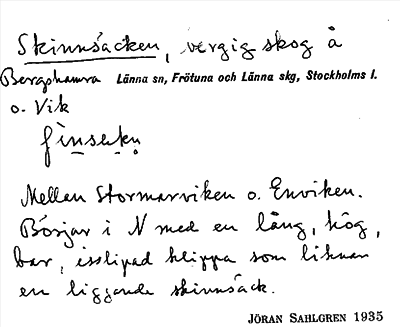 Skinnsäcken, vergig skog å
Bergshamra Länna sn, Frötuna och Länna skg, Stockholms l.
o. Vik
Mellan Stormarviken o. Enviken.
Börjar i N med en lång, hög,
bar, isslipad klippa som liknar
en liggande skinnsäck.
JÖRAN SAHLGREN 1935